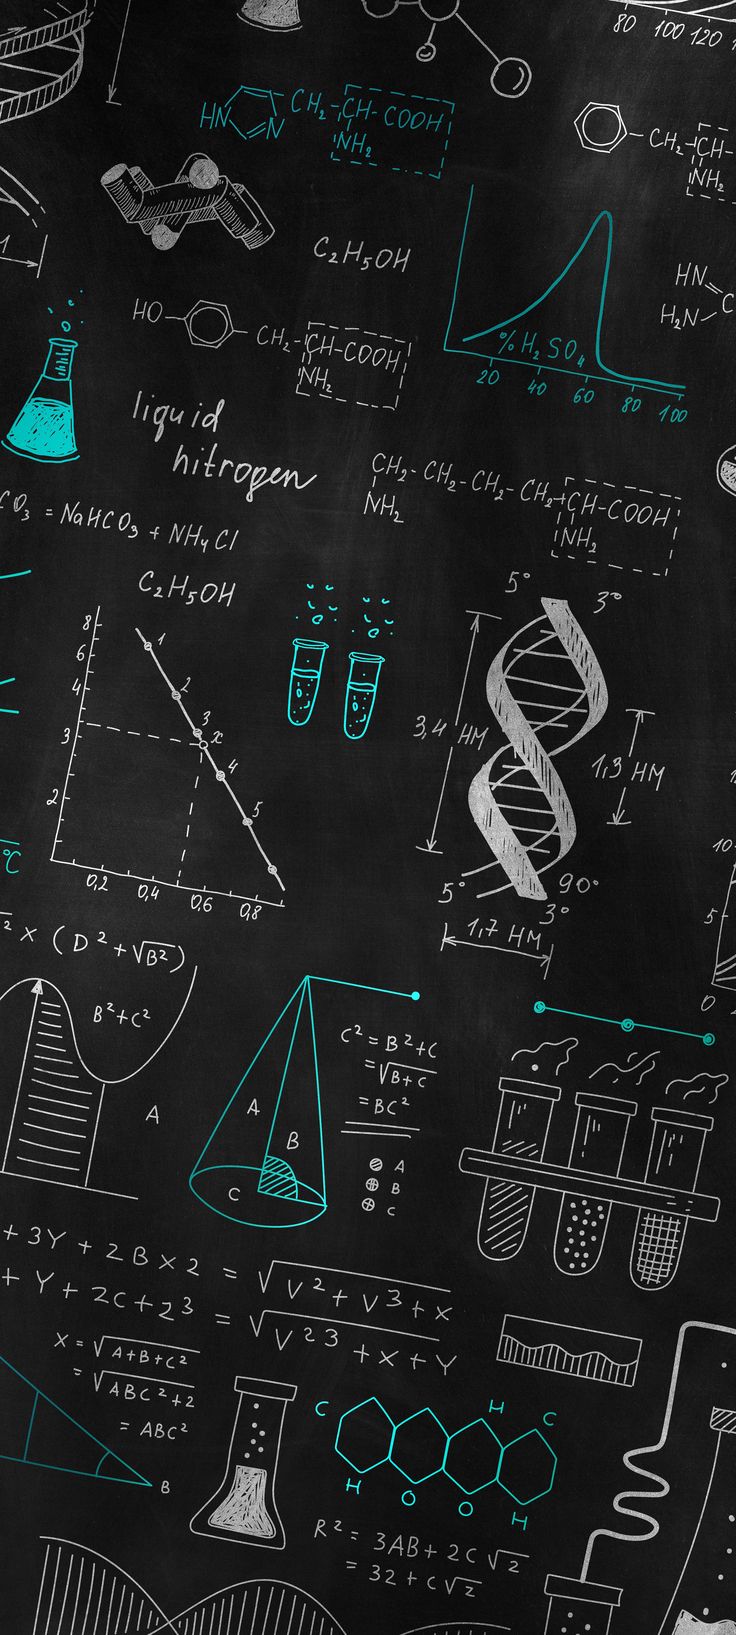 80 100 120
HN N CH₂-CH-COOH
NH₂
CH₂-CH-
NH₂
C₂H₅OH
HN=C
H₂N
1
HO CH₂-CH-COOH
NH₂
% H₂SO₄
20 40 60 80 100
liquid
nitrogen
CH₂-CH₂-CH₂-CH₂-CH-COOH
NH₂ NH₂
CO₃ = NaHCO₃ + NH₄Cl
C₂H₅OH
8
6
4
3
2
1
2
3
x
4
5
0,2 0,4 0,6 0,8
5° 3°
3,4 HM
1,3 HM
5° 90°
3°
1,7 HM
°C
10
5
0
² x (D² + √B²)
B² + C²
A
A
B
C
C² = B² + C
= √B+C
= BC²
A
B
C
+ 3Y + 2B x 2 = √V² + V³ + x
+ Y + 2C + 2³ = √V²³ + X + Y
X = √A+B+C²
= √ABC²+2
= ABC²
B
C H C
H O O H
R² = 3AB + 2C√2
= 32 + C√2